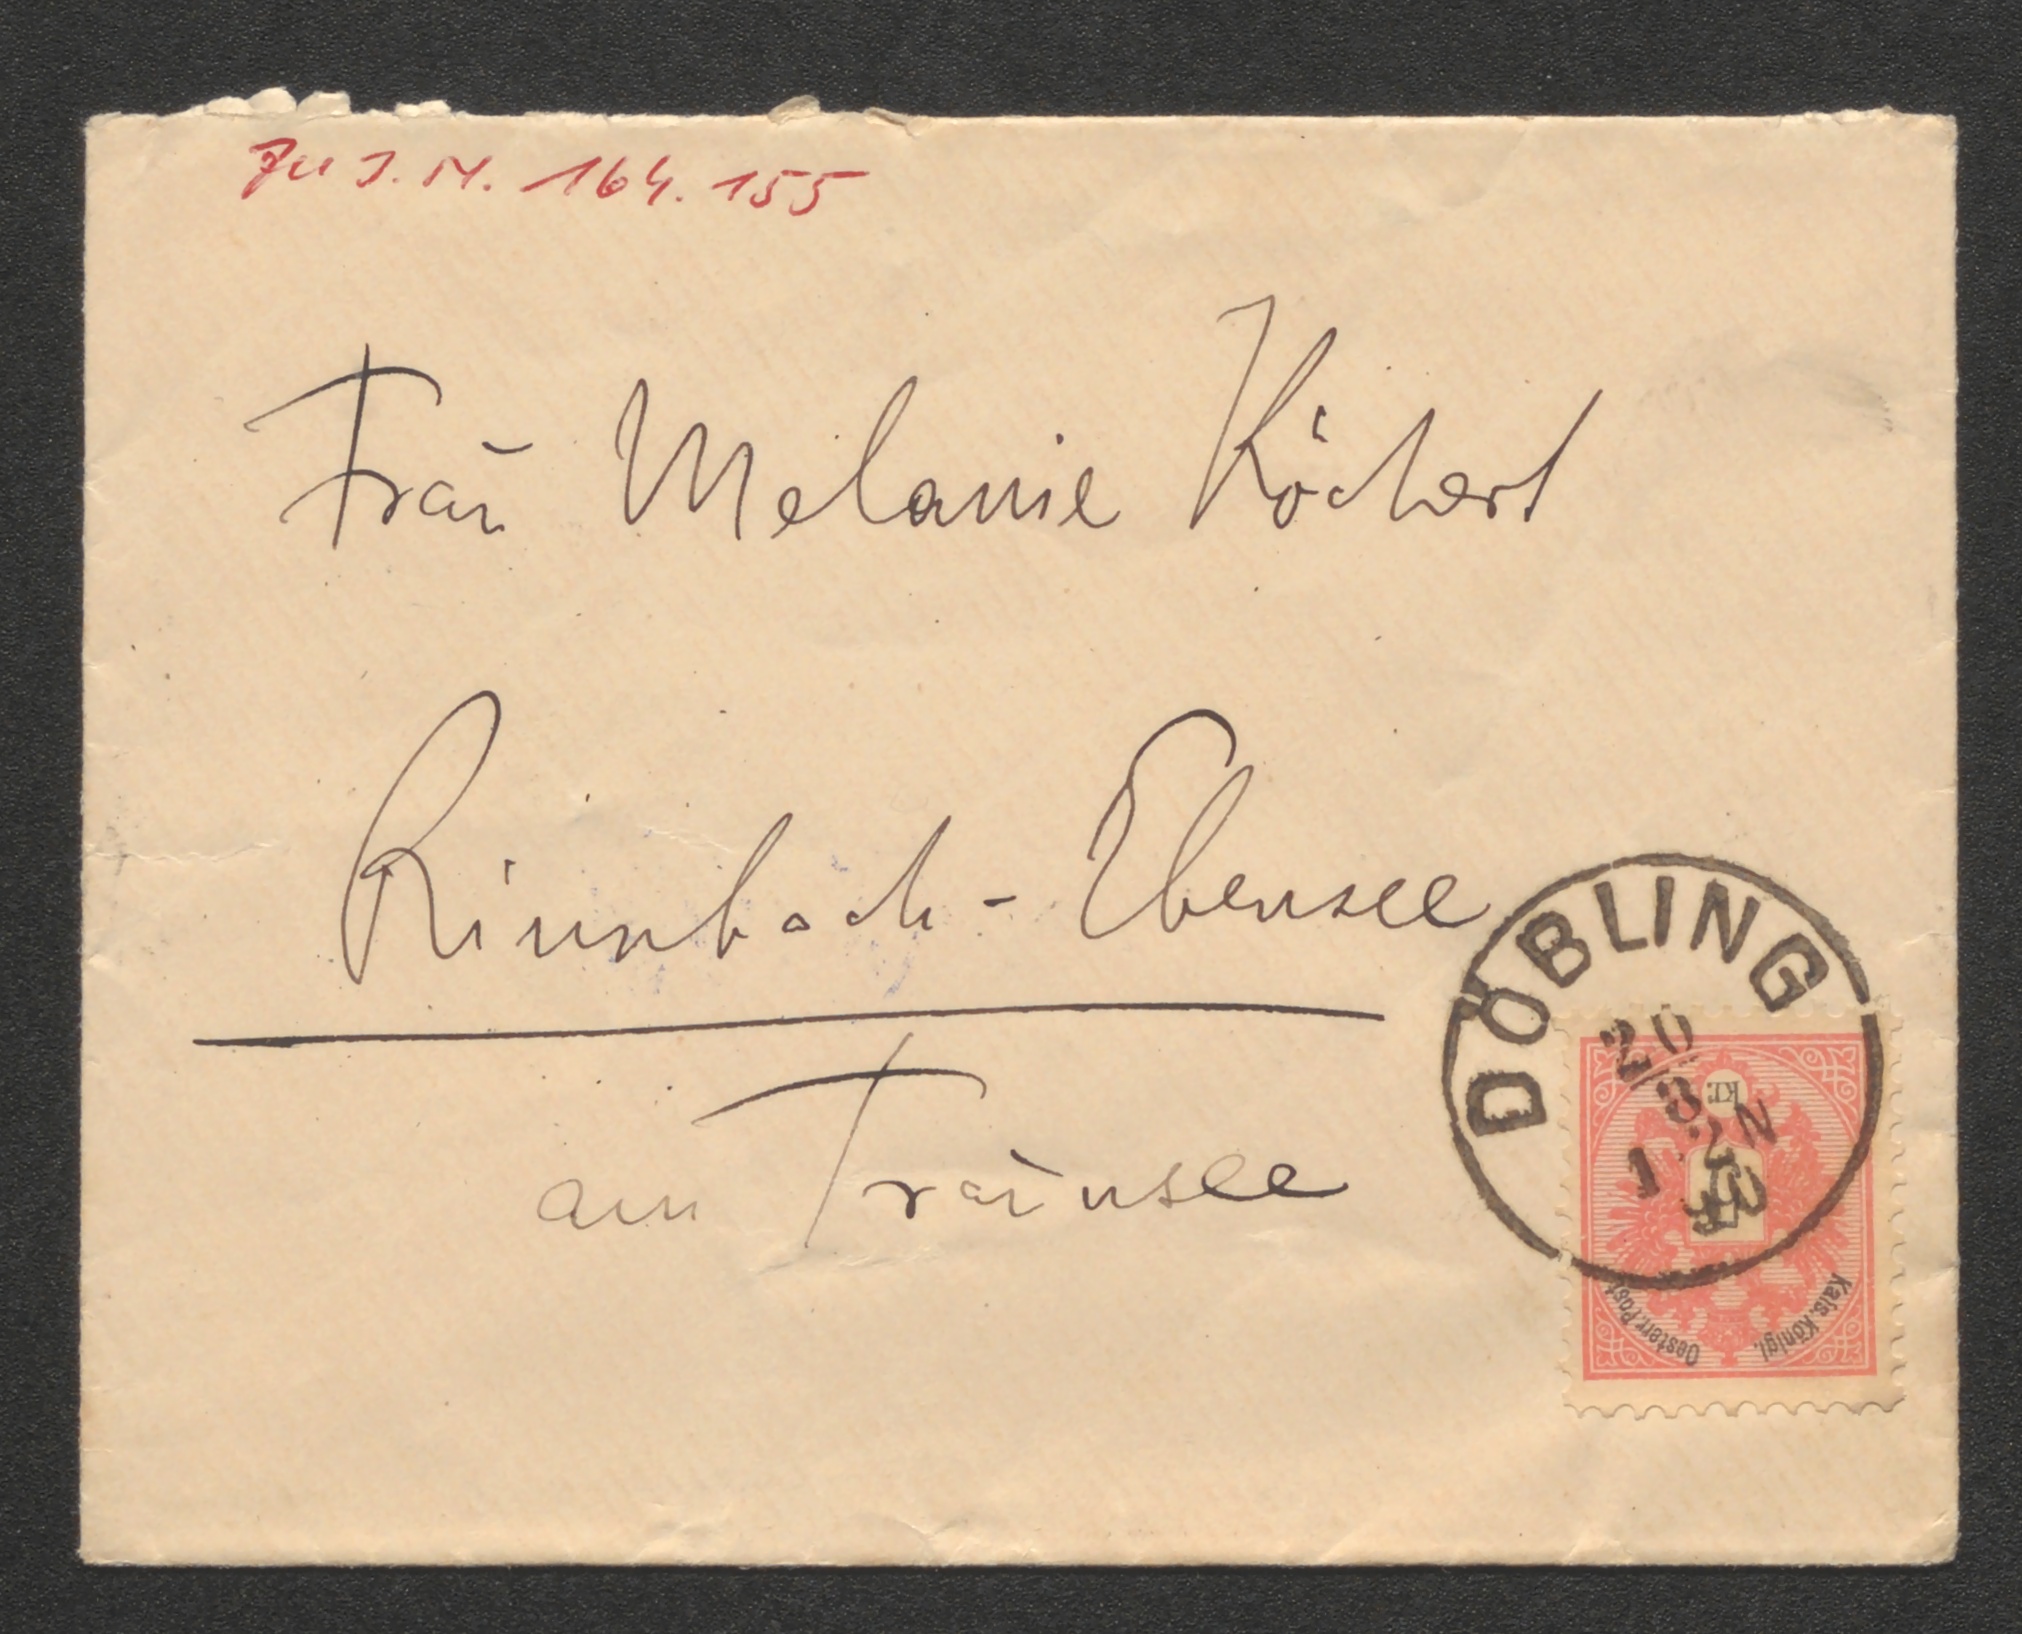 Zu I.N. 164.155
Frau Melanie Köchert
Rinnbach-Ebensee
am Traunsee
DÖBLING
20
8
kr.
Kais. Königl.
Oesterr. Post